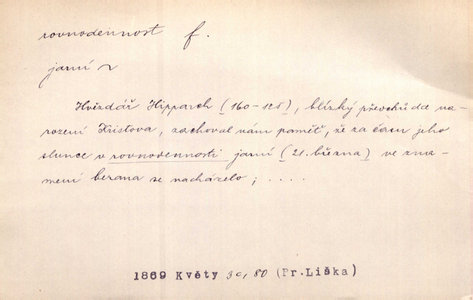 rovnodennost f.
jarní ~
Hvězdář Hipparch (160–125), blízký převchůdce na-
rození Kristova, zachoval nám paměť, že za časův jeho
slunce v rovnodennosti jarní (21. března) ve zna-
mení berana se nacházelo; ....
1869 Květy 30, 80 (Fr. Liška)